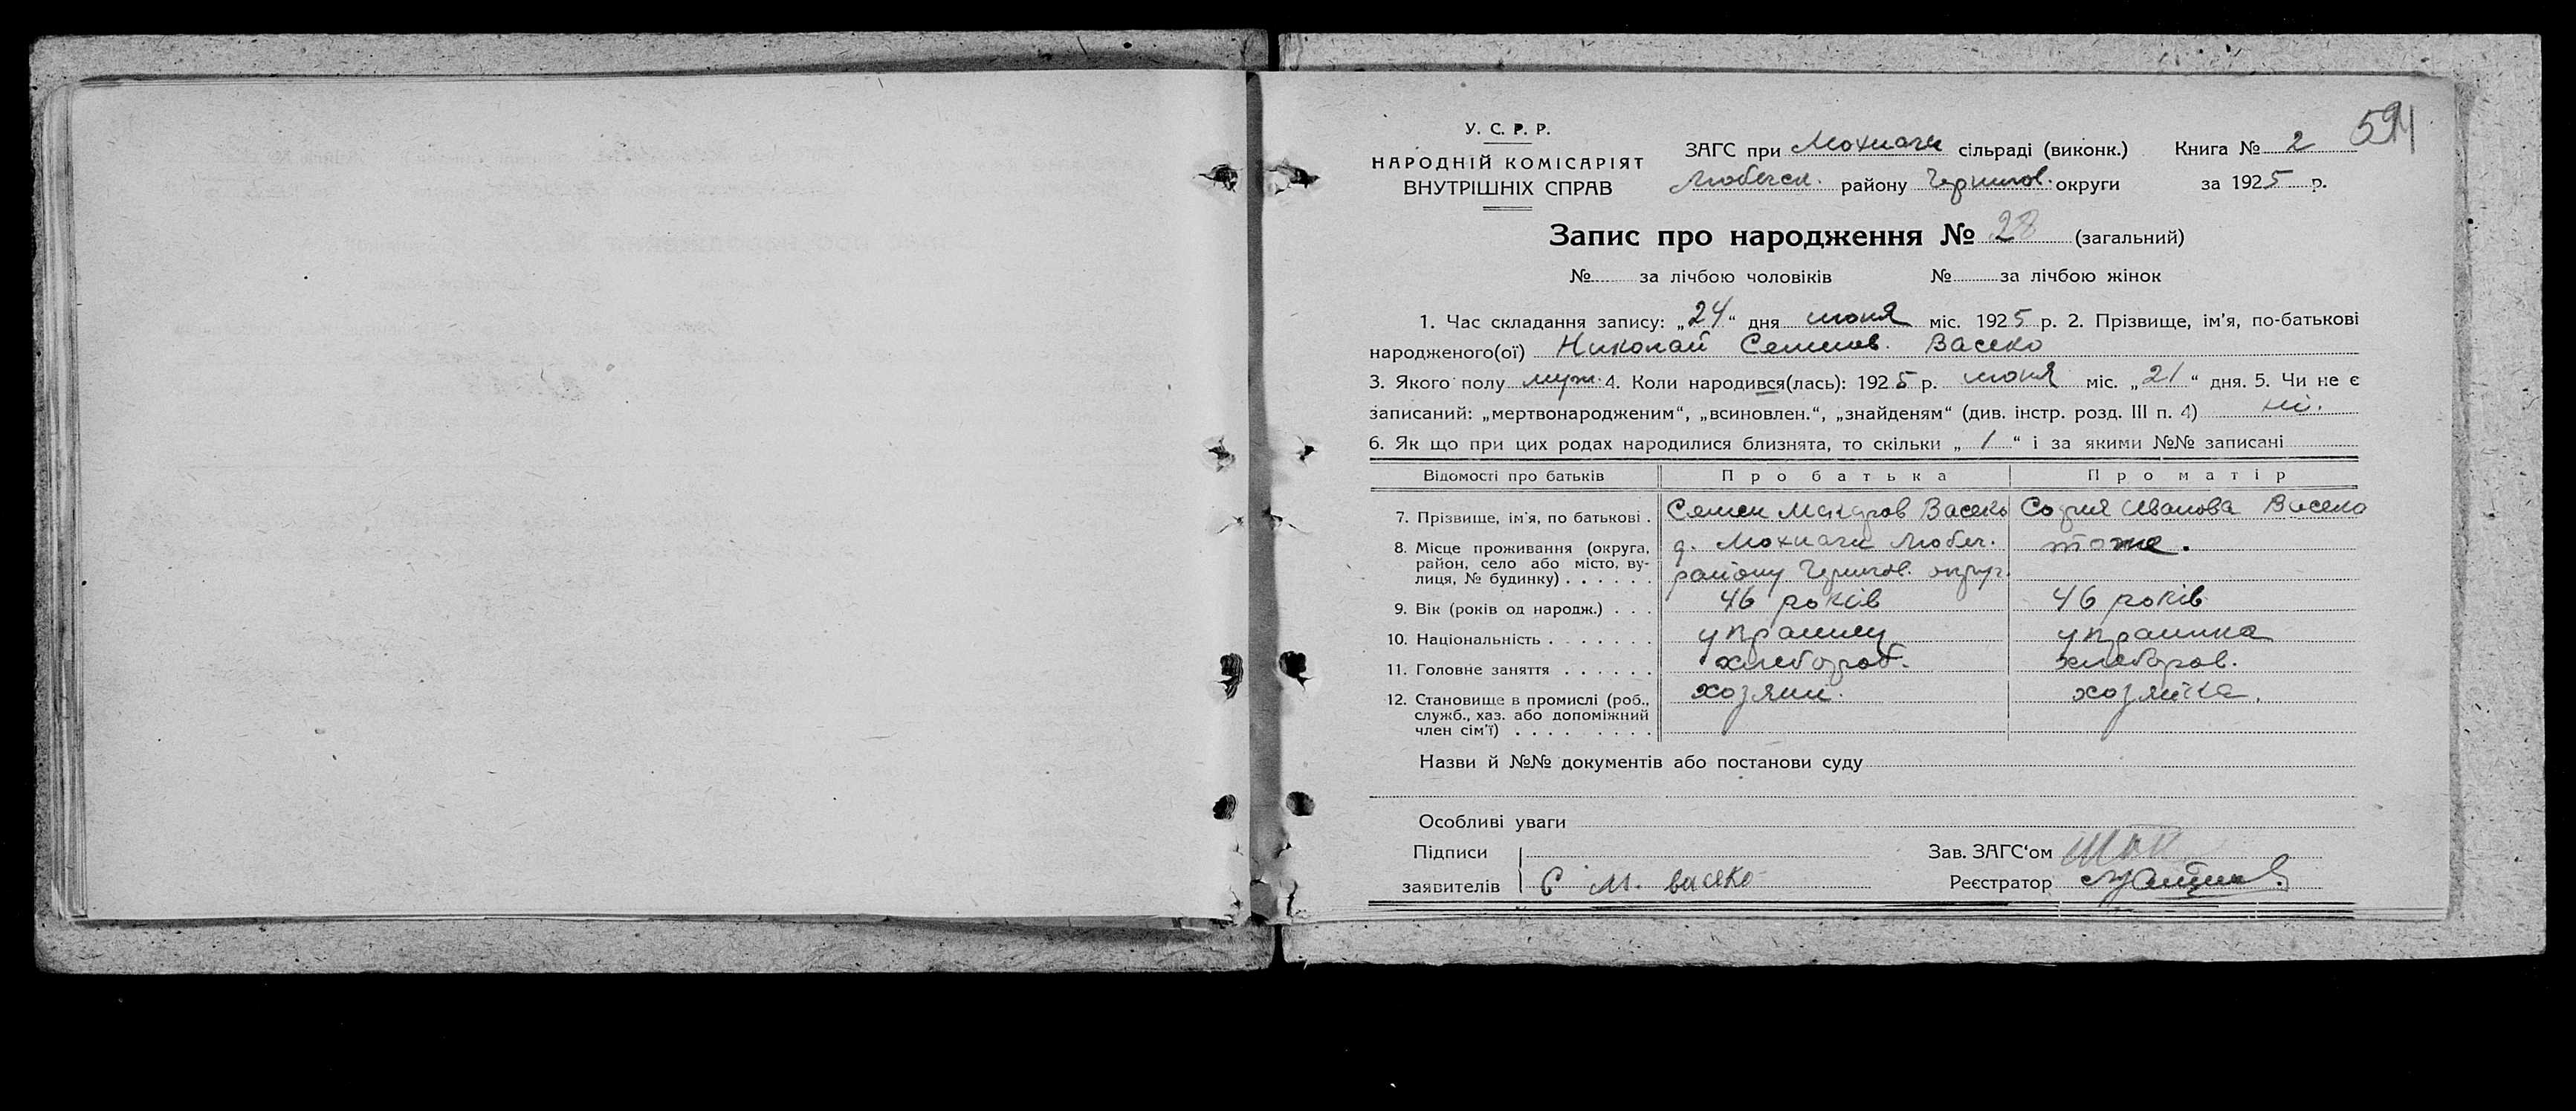 594
У. С. Р. Р.
НАРОДНІЙ КОМІСАРІЯТ
ВНУТРІШНІХ СПРАВ
ЗАГС при Мохначи сільраді (виконк.) Книга № 2
Любечск. району Чернигов. округи за 1925 р.
Запис про народження № 28 (загальний)
№ за лічбою чоловіків № за лічбою жінок
1. Час складання запису: „24“ дня июня міс. 1925 р. 2. Прізвище, ім'я, по-батькові
народженого(ої) Николай Семенов. Васеко
3. Якого полу муж. 4. Коли народився(лась): 1925 р. июня міс. „21“ дня. 5. Чи не є
записаний: „мертвонародженим“, „всиновлен.“, „знайденям“ (див. інстр. розд. III п. 4) ні.
6. Як що при цих родах народилися близнята, то скільки „1“ і за якими №№ записані
Відомості про батьків Про батька Про матір
7. Прізвище, ім'я, по батькові . Семен Макаров Васеко София Иванова Васеко
8. Місце проживання (округа, район, село або місто, вулиця, № будинку) . . . . . . д. Мохначи Любеч. тоже.
району Чернигов. округ.
9. Вік (років од народж.) . . . 46 років 46 років
10. Національність . . . . . . . украинец украинка
11. Головне заняття . . . . . . хлебороб. хлебороб.
12. Становище в промислі (роб., служб., хаз. або допоміжний член сім'ї) . . . . . . . . . хозяин. хозяйка.
Назви й №№ документів або постанови суду
Особливі уваги
Підписи Зав. ЗАГС'ом
заявителів С М. Васеко Реєстратор